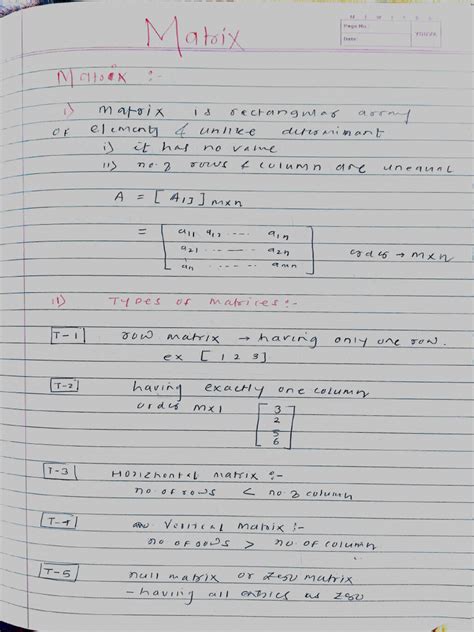 Matrix
M T W T F S S
Page No.:
Date:
YOUVA
Matrix :-
i) Matrix is rectangular array
of elements & unlike determinant
i) it has no value
ii) no. of rows & column are unequal
A = [ Aij ] m×n
= [ a11 a12 ---- a1n
a21 --- ---- a2n
an --- --- amn ] order → m×n
ii) Types of matrices :-
T-1 row matrix → having only one row.
ex [ 1 2 3 ]
T-2 having exactly one column
order m×1 [ 3
2
5
6 ]
T-3 Horizhontal matrix :-
no of rows < no of column
T-4 Vertical matrix :-
no of rows > no. of column
T-5 null matrix or zero matrix
- having all entries as zero